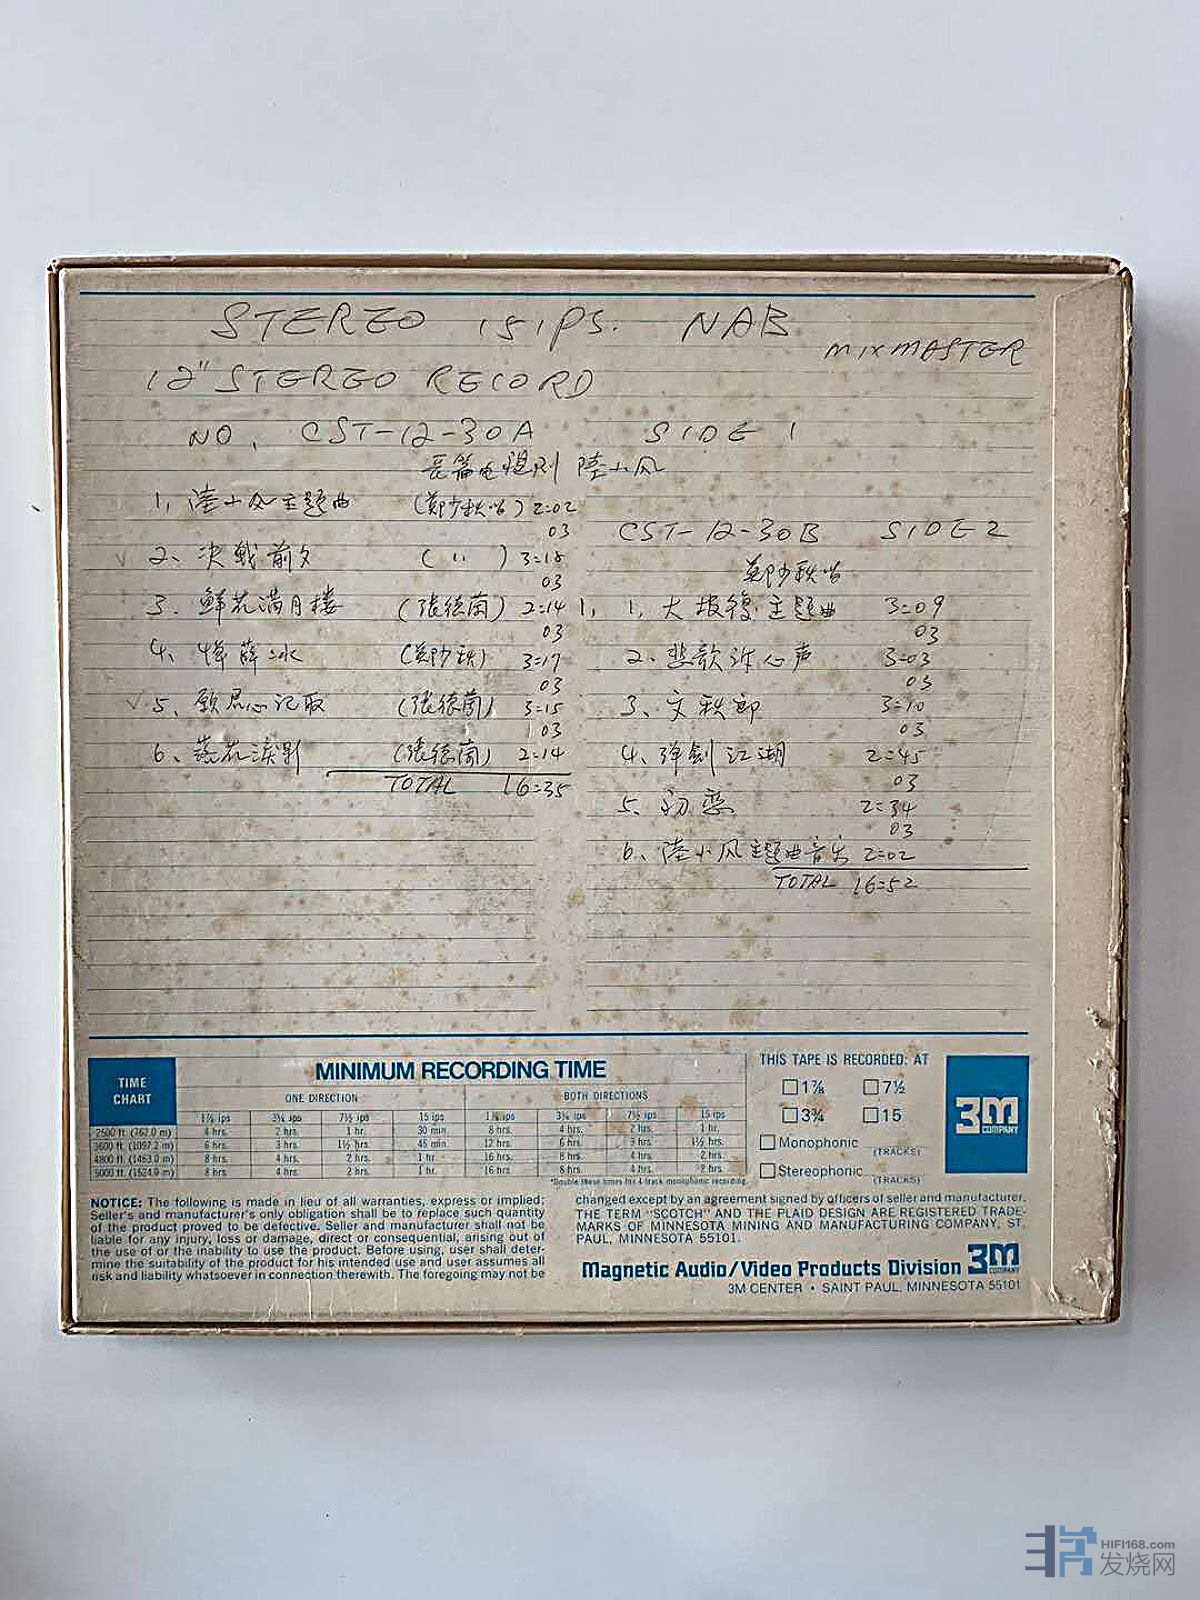 STEREO 15IPS. NAB
MIX MASTER
12" STEREO RECORD
NO. CST-12-30A SIDE 1
長篇电視剧 陸小凤
1, 陸小凤主題曲 (鄭少秋唱) 2=02
03
2、决戦前夕 ( " ) 3=18
03
3. 鮮花满月楼 (張德蘭) 2=14
03
4、悼薛冰 (鄭少秋) 3=17
03
5、願君心记取 (張德蘭) 3=15
03
6、燕花淚影 (張德蘭) 2=14
TOTAL 16=35
CST-12-30B SIDE 2
鄭少秋唱
1, 1, 大報復主題曲 3=09
03
2、悲歌訴心声 3=03
03
3、文秋郎 3=10
03
4、弹剑江湖 2=45
03
5、初恋 2=34
03
6、陸小凤主題曲音乐 2=02
TOTAL 16=52
TIME CHART
MINIMUM RECORDING TIME
ONE DIRECTION BOTH DIRECTIONS
1⅞ ips 3¾ ips 7½ ips 15 ips 1⅞ ips 3¾ ips 7½ ips 15 ips
2500 ft. (762.0 m) 4 hrs. 2 hrs. 1 hr. 30 min. 8 hrs. 4 hrs. 2 hrs. 1 hr.
3600 ft. (1097.2 m) 6 hrs. 3 hrs. 1½ hrs. 45 min. 12 hrs. 6 hrs. 3 hrs. 1½ hrs.
4800 ft. (1463.0 m) 8 hrs. 4 hrs. 2 hrs. 1 hr. 16 hrs. 8 hrs. 4 hrs. 2 hrs.
5000 ft. (1524.0 m) 8 hrs. 4 hrs. 2 hrs. 1 hr. 16 hrs. 8 hrs. 4 hrs. 2 hrs.
*Double these times for 4 track monophonic recording.
THIS TAPE IS RECORDED: AT
☐ 1⅞ ☐ 7½
☐ 3¾ ☐ 15
☐ Monophonic (TRACKS)
☐ Stereophonic (TRACKS)
3M COMPANY
NOTICE: The following is made in lieu of all warranties, express or implied:
Seller's and manufacturer's only obligation shall be to replace such quantity
of the product proved to be defective. Seller and manufacturer shall not be
liable for any injury, loss or damage, direct or consequential, arising out of
the use of or the inability to use the product. Before using, user shall deter-
mine the suitability of the product for his intended use and user assumes all
risk and liability whatsoever in connection therewith. The foregoing may not be
changed except by an agreement signed by officers of seller and manufacturer.
THE TERM "SCOTCH" AND THE PLAID DESIGN ARE REGISTERED TRADE-
MARKS OF MINNESOTA MINING AND MANUFACTURING COMPANY, ST.
PAUL, MINNESOTA 55101.
Magnetic Audio/Video Products Division 3M COMPANY
3M CENTER • SAINT PAUL, MINNESOTA 55101
HIFI168.com
发烧网